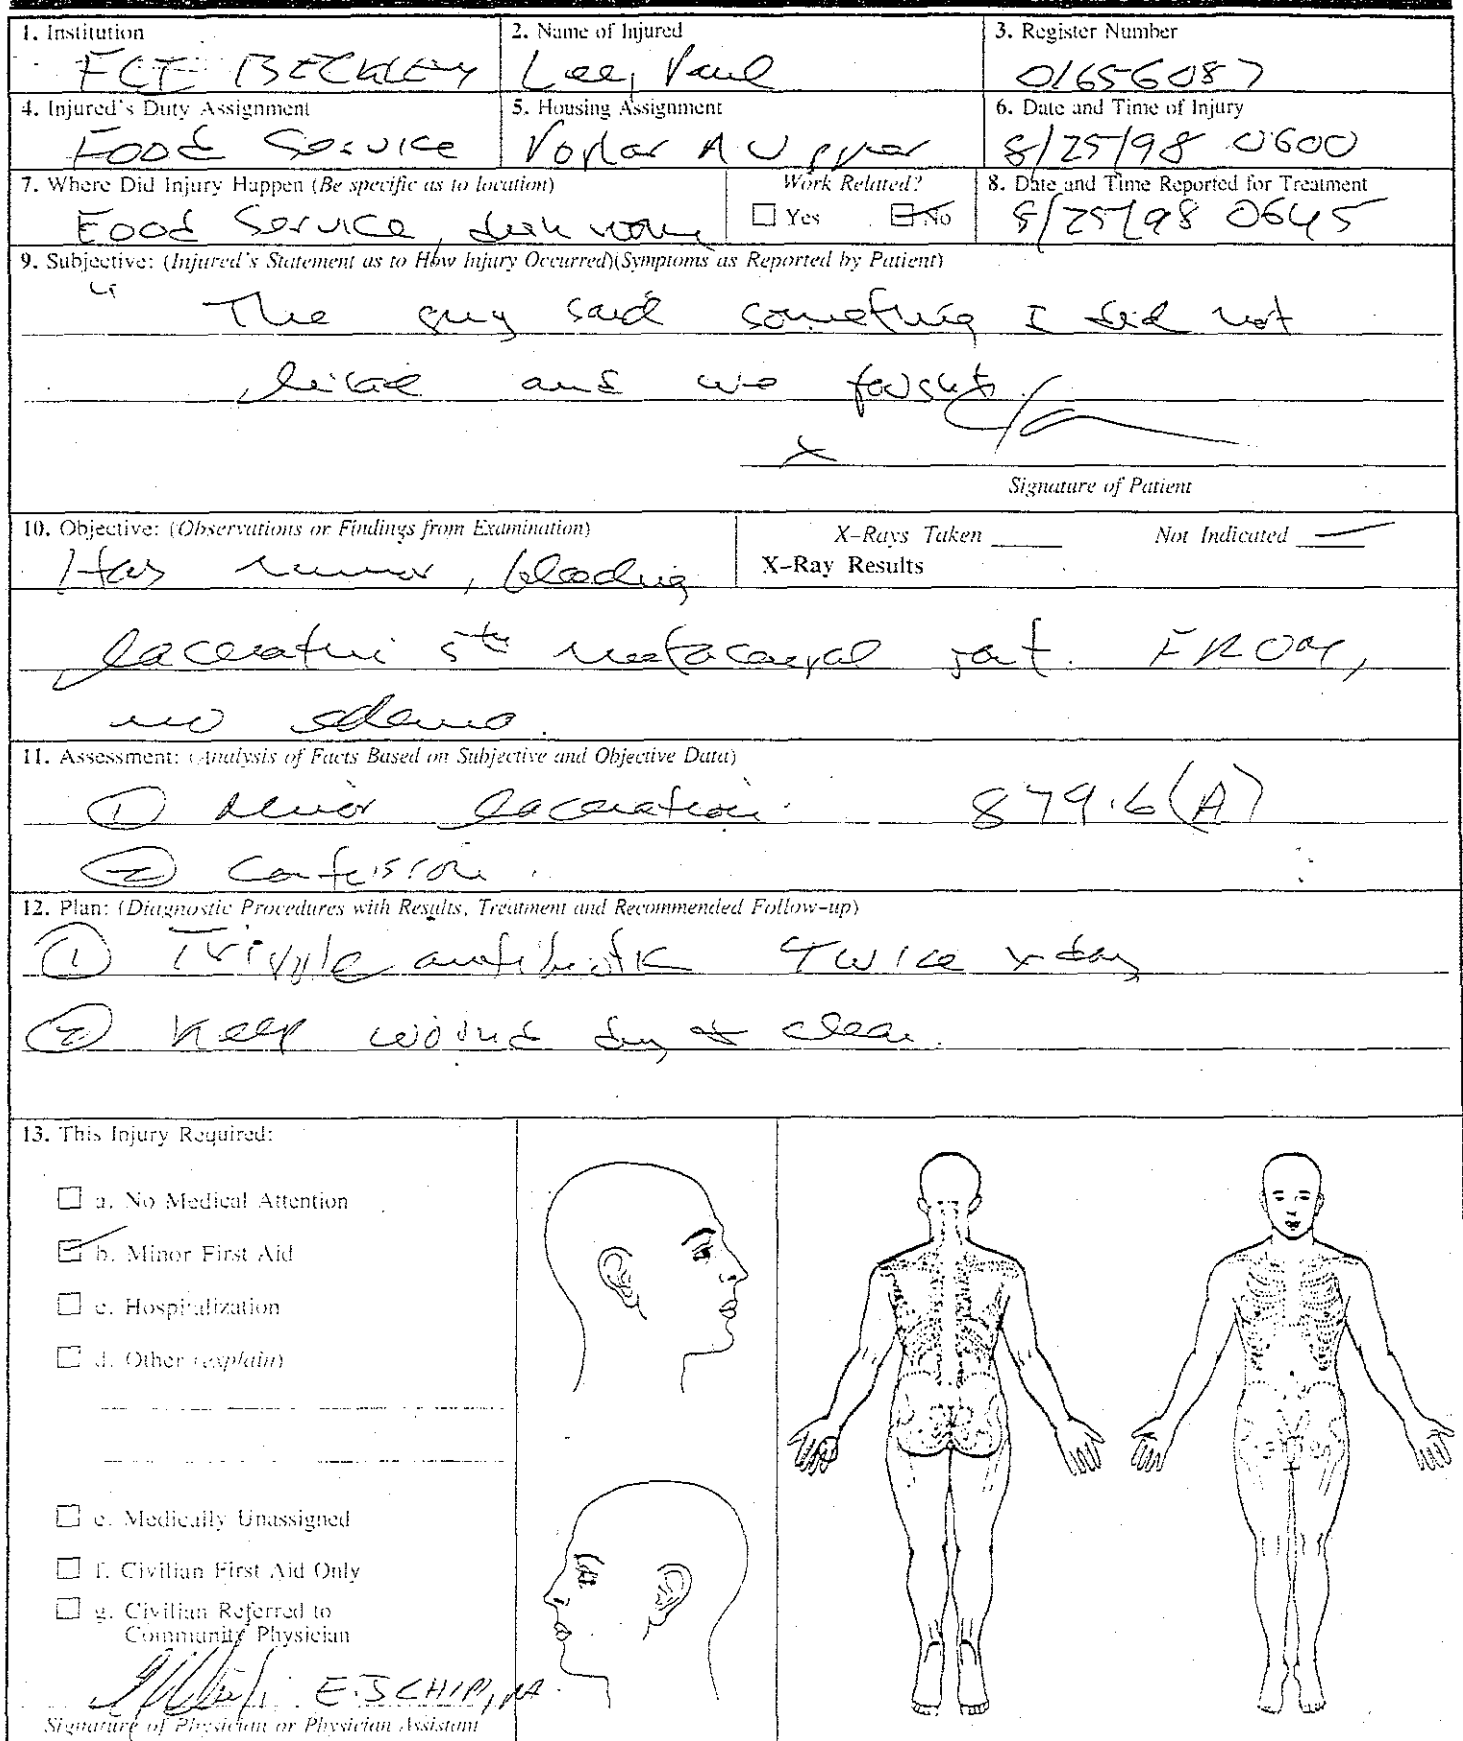 1. Institution
FCI BECKLEY
2. Name of Injured
Lee, Paul
3. Register Number
01656087
4. Injured's Duty Assignment
Food Service
5. Housing Assignment
Poplar A Upper
6. Date and Time of Injury
8/25/98 0600
7. Where Did Injury Happen (Be specific as to location)
Food Service, dish room
Work Related?
Yes No
8. Date and Time Reported for Treatment
8/25/98 0645
9. Subjective: (Injured's Statement as to How Injury Occurred)(Symptoms as Reported by Patient)
" The guy said something I did not
like and we fought.
x
Signature of Patient
10. Objective: (Observations or Findings from Examination)
X-Rays Taken Not Indicated
X-Ray Results
Has minor, bleeding
laceration 5th metacarpal FROM,
no edema.
11. Assessment: (Analysis of Facts Based on Subjective and Objective Data)
1 Minor laceration. 879.6(A)
2 Contusion.
12. Plan: (Diagnostic Procedures with Results, Treatment and Recommended Follow-up)
1 Triple antibiotic twice x day
2 Keep wound dry & clean.
13. This Injury Required:
a. No Medical Attention
b. Minor First Aid
c. Hospitalization
d. Other (explain)
e. Medically Unassigned
f. Civilian First Aid Only
g. Civilian Referred to
Community Physician
E. SCHIP, PA
Signature of Physician or Physician Assistant